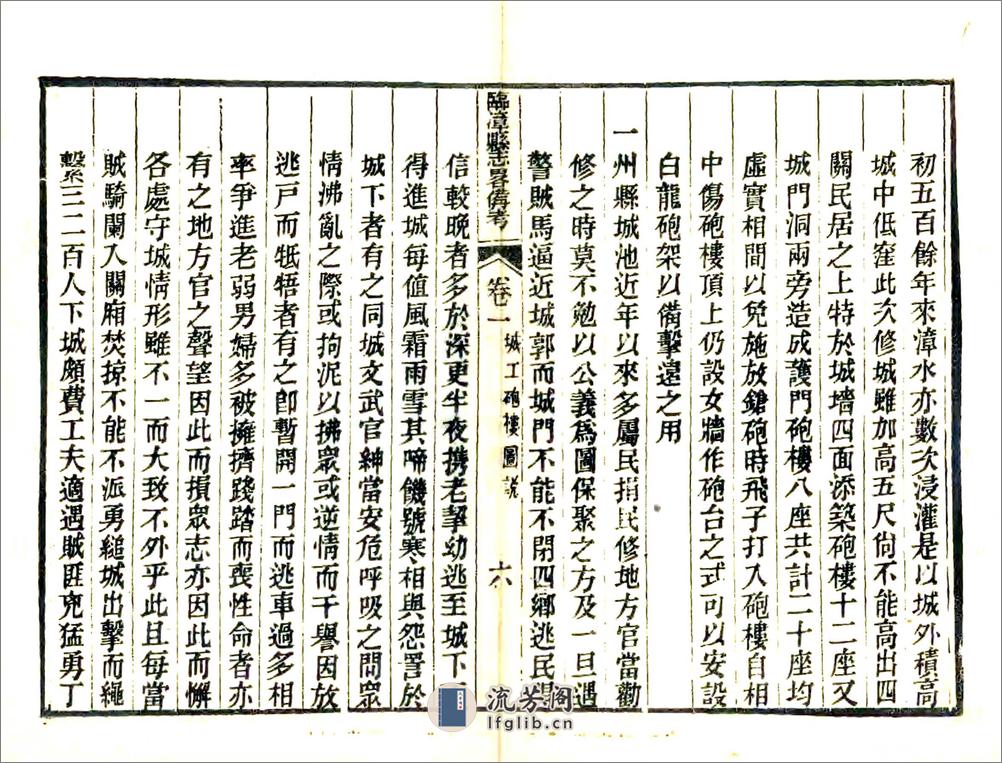 初五百餘年來漳水亦數次浸灌是以城外積高
城中低窪此次修城雖加高五尺尙不能高出四
關民居之上特於城墻四面添築砲樓十二座又
城門洞兩旁造成護門砲樓八座共計二十座均
虛實相間以免施放鎗砲時飛子打入砲樓自相
中傷砲樓頂上仍設女牆作砲台之式可以安設
白龍砲架以備擊遠之用
一州縣城池近年以來多屬民捐民修地方官當勸
修之時莫不勉以公義爲圖保聚之方及一旦遇
警賊馬逼近城郭而城門不能不閉四鄉逃民
臨漳縣志畧備考
卷一
城工砲樓圖說
十六
信較晚者多於深更半夜携老挈幼逃至城下
得進城每值風霜雨雪其啼饑號寒相與怨詈於
城下者有之同城文武官紳當安危呼吸之間衆
情沸亂之際或拘泥以拂衆或逆情而干譽因放
逃戶而牴牾者有之卽暫開一門而逃車過多相
率爭進老弱男婦多被擁擠踐踏而喪性命者亦
有之地方官之聲望因此而損衆志亦因此而懈
各處守城情形雖不一而大致不外乎此且每當
賊騎闌入關廂焚掠不能不派勇縋城出擊而繩
繫三二百人下城頗費工夫適遇賊匪兇猛勇丁
流芳阁
lfglib.cn